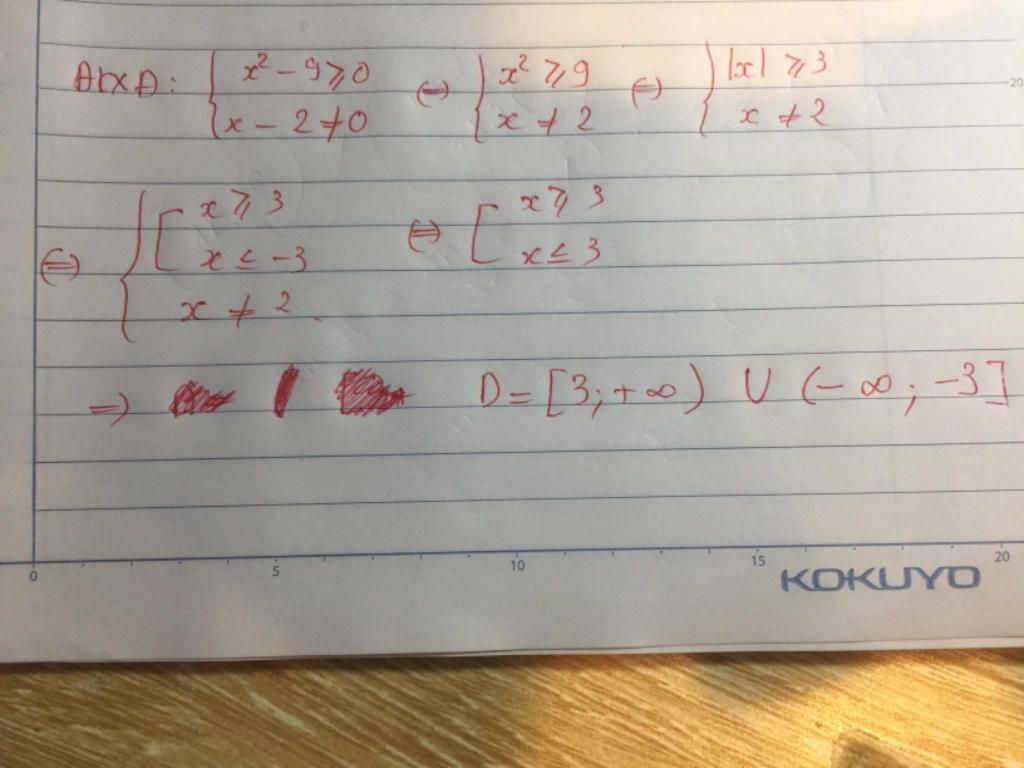 ĐKXĐ: { x² - 9 ⩾ 0 ; x - 2 ≠ 0 ⇔ { x² ⩾ 9 ; x ≠ 2 ⇔ { |x| ⩾ 3 ; x ≠ 2
⇔ { [ x ⩾ 3 ; x ≤ -3 ; x ≠ 2 . ⇔ [ x ⩾ 3 ; x ≤ 3
⇒ D = [3; +∞) ∪ (-∞; -3]
0 5 10 15 20
KOKUYO
20